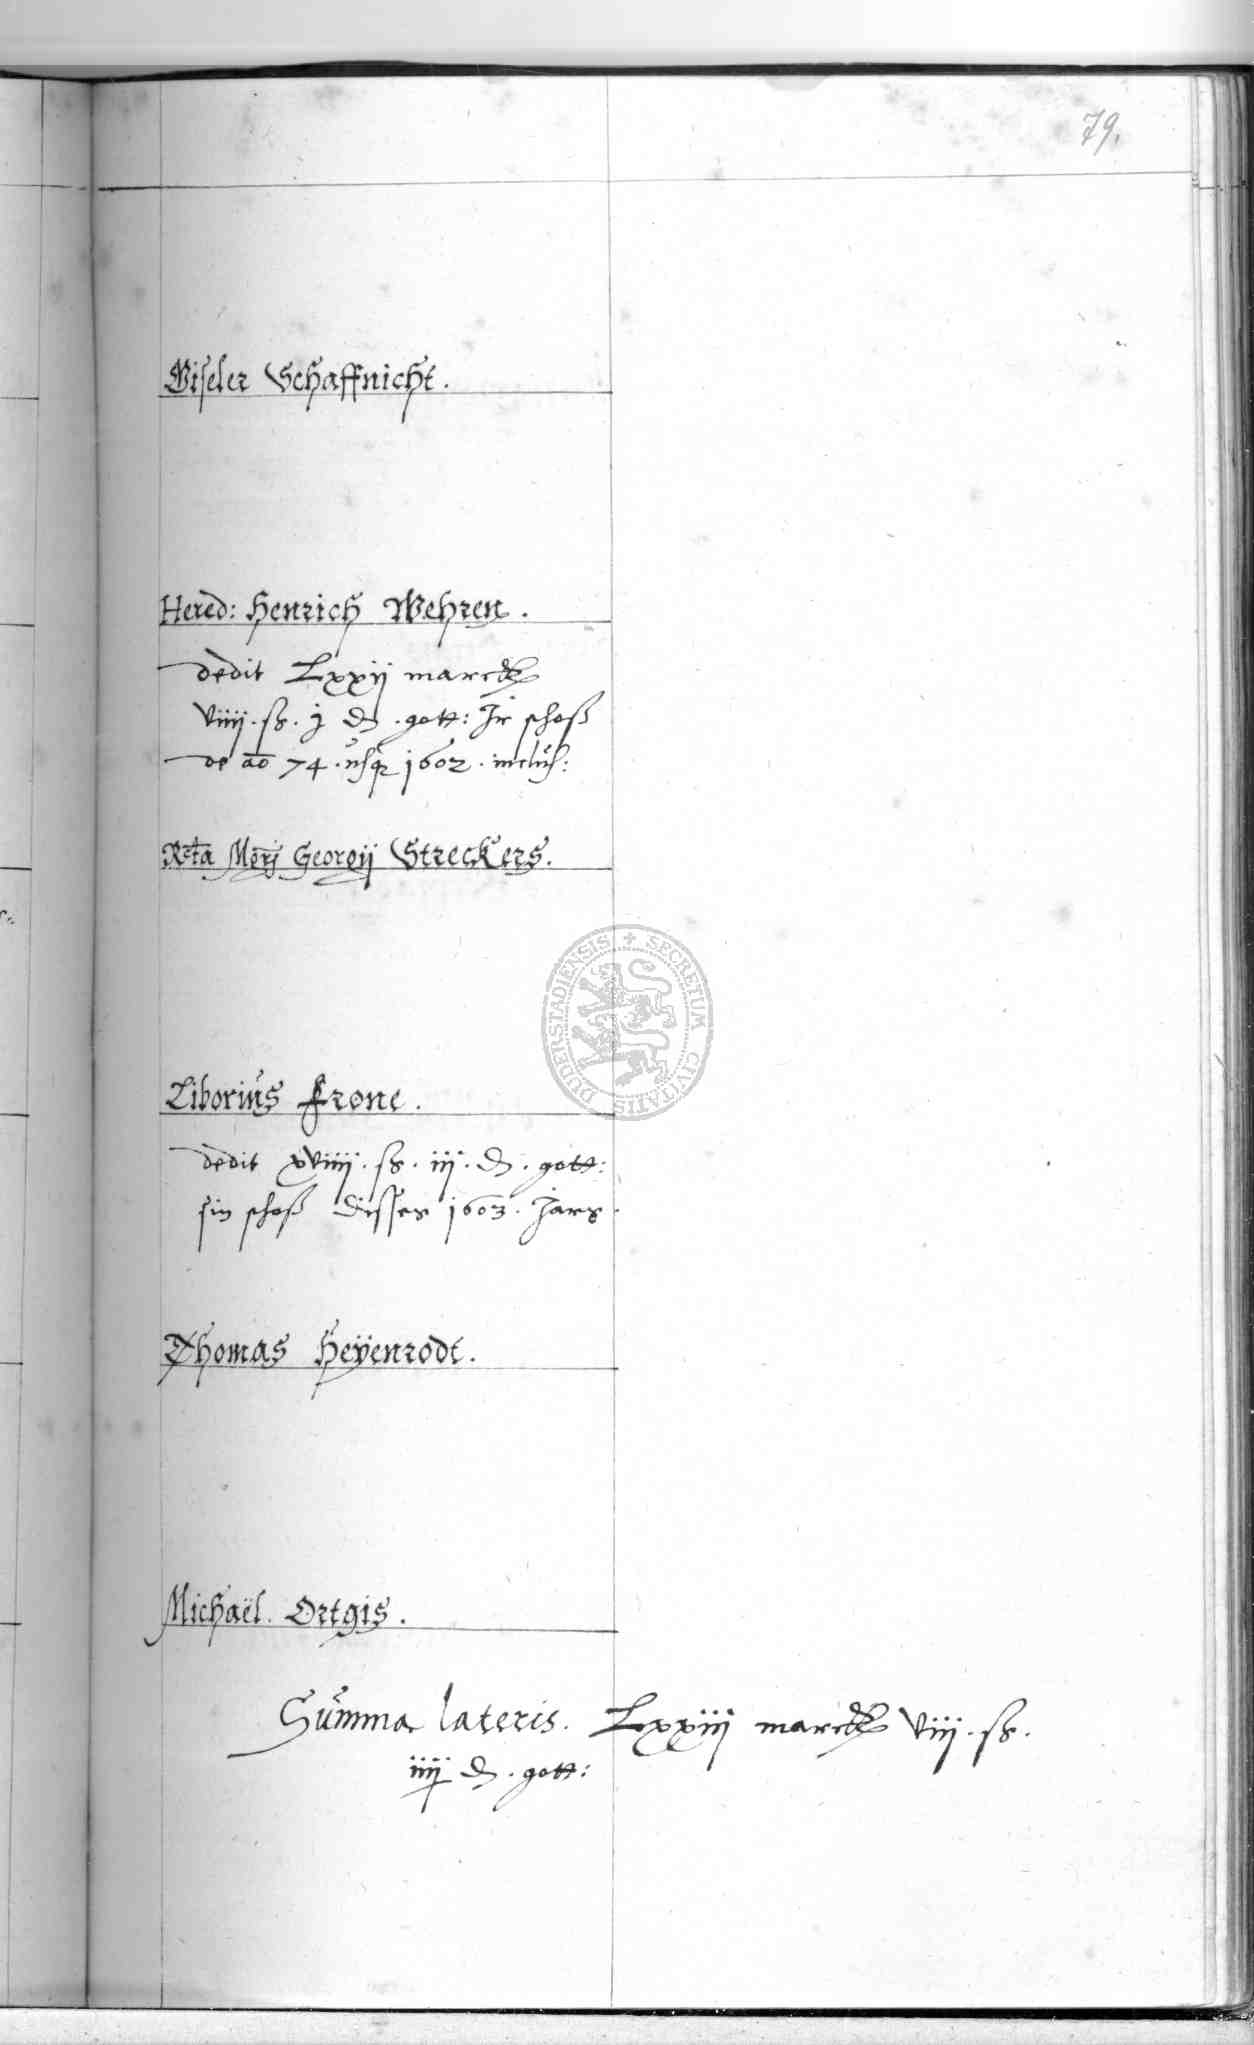 79.
Giseler Schaffnicht.
Hered: Henrich Wehren.
dedit Lxxij marck
viiij. ss. j d. gott: Jr schoß
de ao 74. usq 1602. inclus:
Rcta Mgri Georgij Streckers.
SECRETUM CIVITATIS DUDERSTADIENSIS
Liborius Krone.
dedit xviiij. ss. iij. d. gott:
sin schoß disses 1603. Jars
Thomas Heÿenrodt.
Michaël Ortgis.
Summa lateris. Lxxiij marck viij. ss.
iiij d. gott: